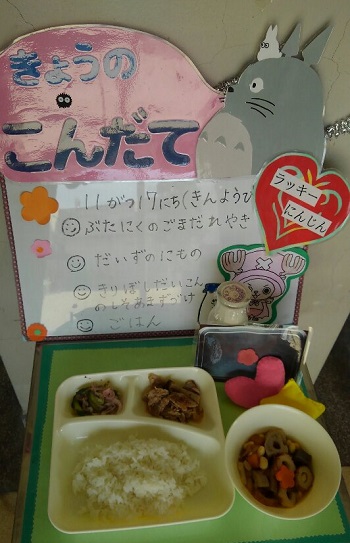 きょうの
こんだて
11がつ17にち(きんようび
ラッキー
にんじん
ぶたにくのごまだれやき
だいずのにもの
きりぼしだいこん
のしそあまずづけ
ごはん